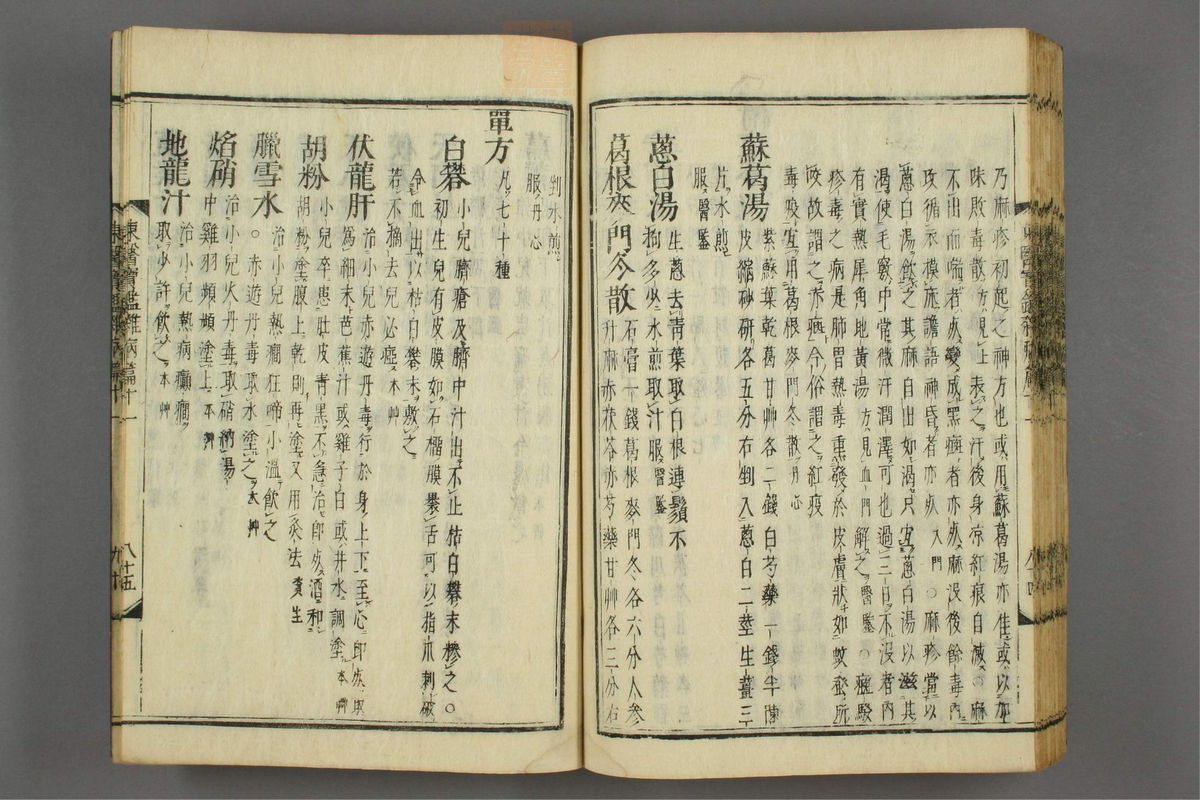 乃麻疹初起之神方也或用蘇葛湯亦佳或以加
味敗毒散方見上表之汗後身凉紅痕自滅○麻
不出而喘者死變成黑癍者亦死麻没後餘毒內
攻循衣摸床譫語神昏者亦死入門○麻疹當以
葱白湯飮之其麻自出如渴只宜葱白湯以滋其
渴使毛竅中常微汗潤澤可也過三日不没者內
有實熱犀角地黃湯方見血門解之醫鑑○癮
疹毒之病是肺胃熱毒熏發於皮膚狀如蚊蚤所
咬故謂之赤癍今俗謂之紅疫
毒疫宜用葛根麥門冬散丹心
蘇葛湯
紫蘇葉乾葛甘艸各二錢白芍藥一錢半陳
皮縮砂研各五分右剉入葱白二莖生薑三
片水煎
服醫鑑
葱白湯
生葱去靑葉取白根連鬚不
拘多少水煎取汁服醫鑑
葛根麥門冬散
石膏一錢葛根麥門冬各六分人參
升麻赤茯苓赤芍藥甘艸各三分右
剉水煎
服丹心
單方
凡七十種
白礬
小兒臍瘡及臍中汁出不止枯白礬末糝之○
初生兒有皮膜如石榴膜褁舌可以指爪刺破
令血出以枯白礬末敷之
若不摘去兒必瘂本艸
伏龍肝
治小兒赤遊丹毒行於身上下至心卽死
爲細末芭蕉汁或雞子白或井水調塗本艸
胡粉
小兒卒患肚皮靑黑不急治卽死酒和
胡粉塗腹上乾則再塗又用灸法資生
臘雪水
治小兒熱癎狂啼小溫飮之
○赤遊丹毒取水塗之本艸
焰硝
治小兒火丹毒取硝納湯
中雞羽頻頻塗上本艸
地龍汁
治小兒熱病癲癎
取少許飮之本艸
東醫寶鑑雜病篇十一
八十五